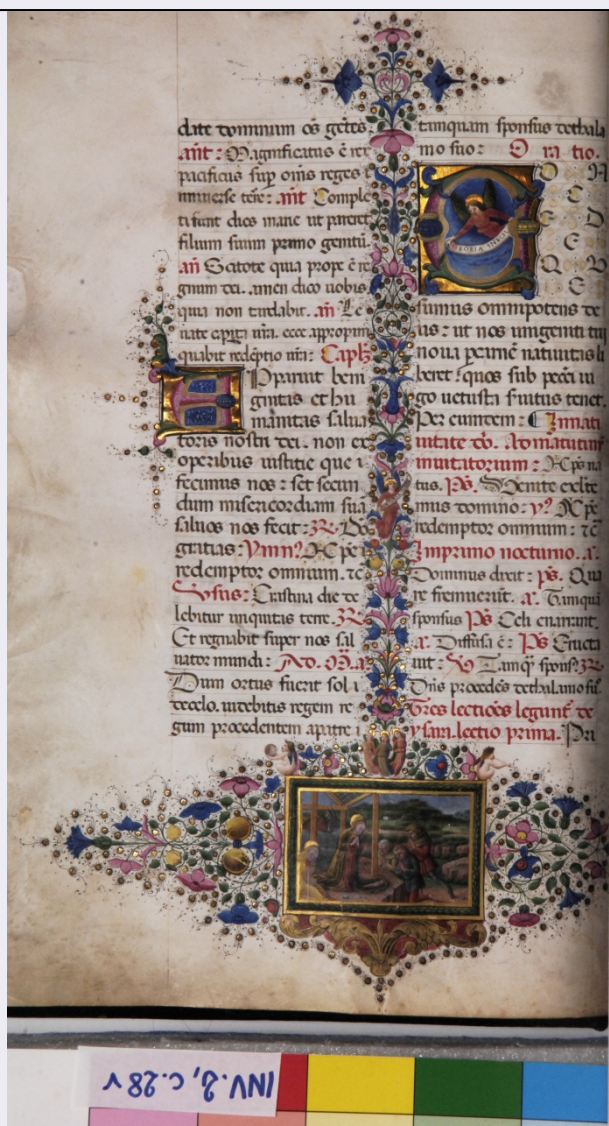 date dominum oēs gētes.
an̄t: Magnificatus ē rex
pacificus sup omīs reges
universe terre: an̄t Comple
ti sunt dies marie ut pareret
filium suum primo genitū.
an̄ Scitote quia prope ē re
gnum dei. amen dico vobis
quia non tardabit. an̄ Le
vate capita vr̄a. ecce appropin
quabit redēptio vr̄a: Capl̄z
Apparuit beni
gnitas et hu
manitas salva
toris nostri dei. non ex
operibus iustitie que
fecimus nos: set secun
dum misericordiam suā
salvos nos fecit: R. Deo
gratias: Ymn⁹ Xp̄e
redemptor omnium. zc̄
Vsus: Crastina die de
lebitur iniquitas terre. R
Et regnabit super nos sal
vator mundi: Ad. M. a
Dum ortus fuerit sol
decelo. videbitis regem re
gum procedentem apatre
tanquam sponsus dethala
mo suo: Oratio.
GLORIA IN
sumus omnipotens de
us: ut nos unigeniti tui
nova per carnē nativitas li
beret: quos sub peccī iu
go vetusta s̄vitus tenet.
Per eumdem: In nati
vitate dō. Ad matutinū
invitatorium: Xp̄s na
tus. Ps. Venite exulte
mus domino: y⁹ Xp̄e
redemptor omnium: zc̄
In primo nocturno. a.
Dominus dixit: ps. Qua
re fremuerūt. a. Tamquā
sponsus Ps Celi enarrant.
a. Diffusa ē: Ps Eructa
vit: V Tamq̄ spons⁹ R
Dn̄s procedēs dethalamo su
Tres lectiōes legunt̄ de
ysaia. lectio prima. Pri
INV. 2, c. 28 v